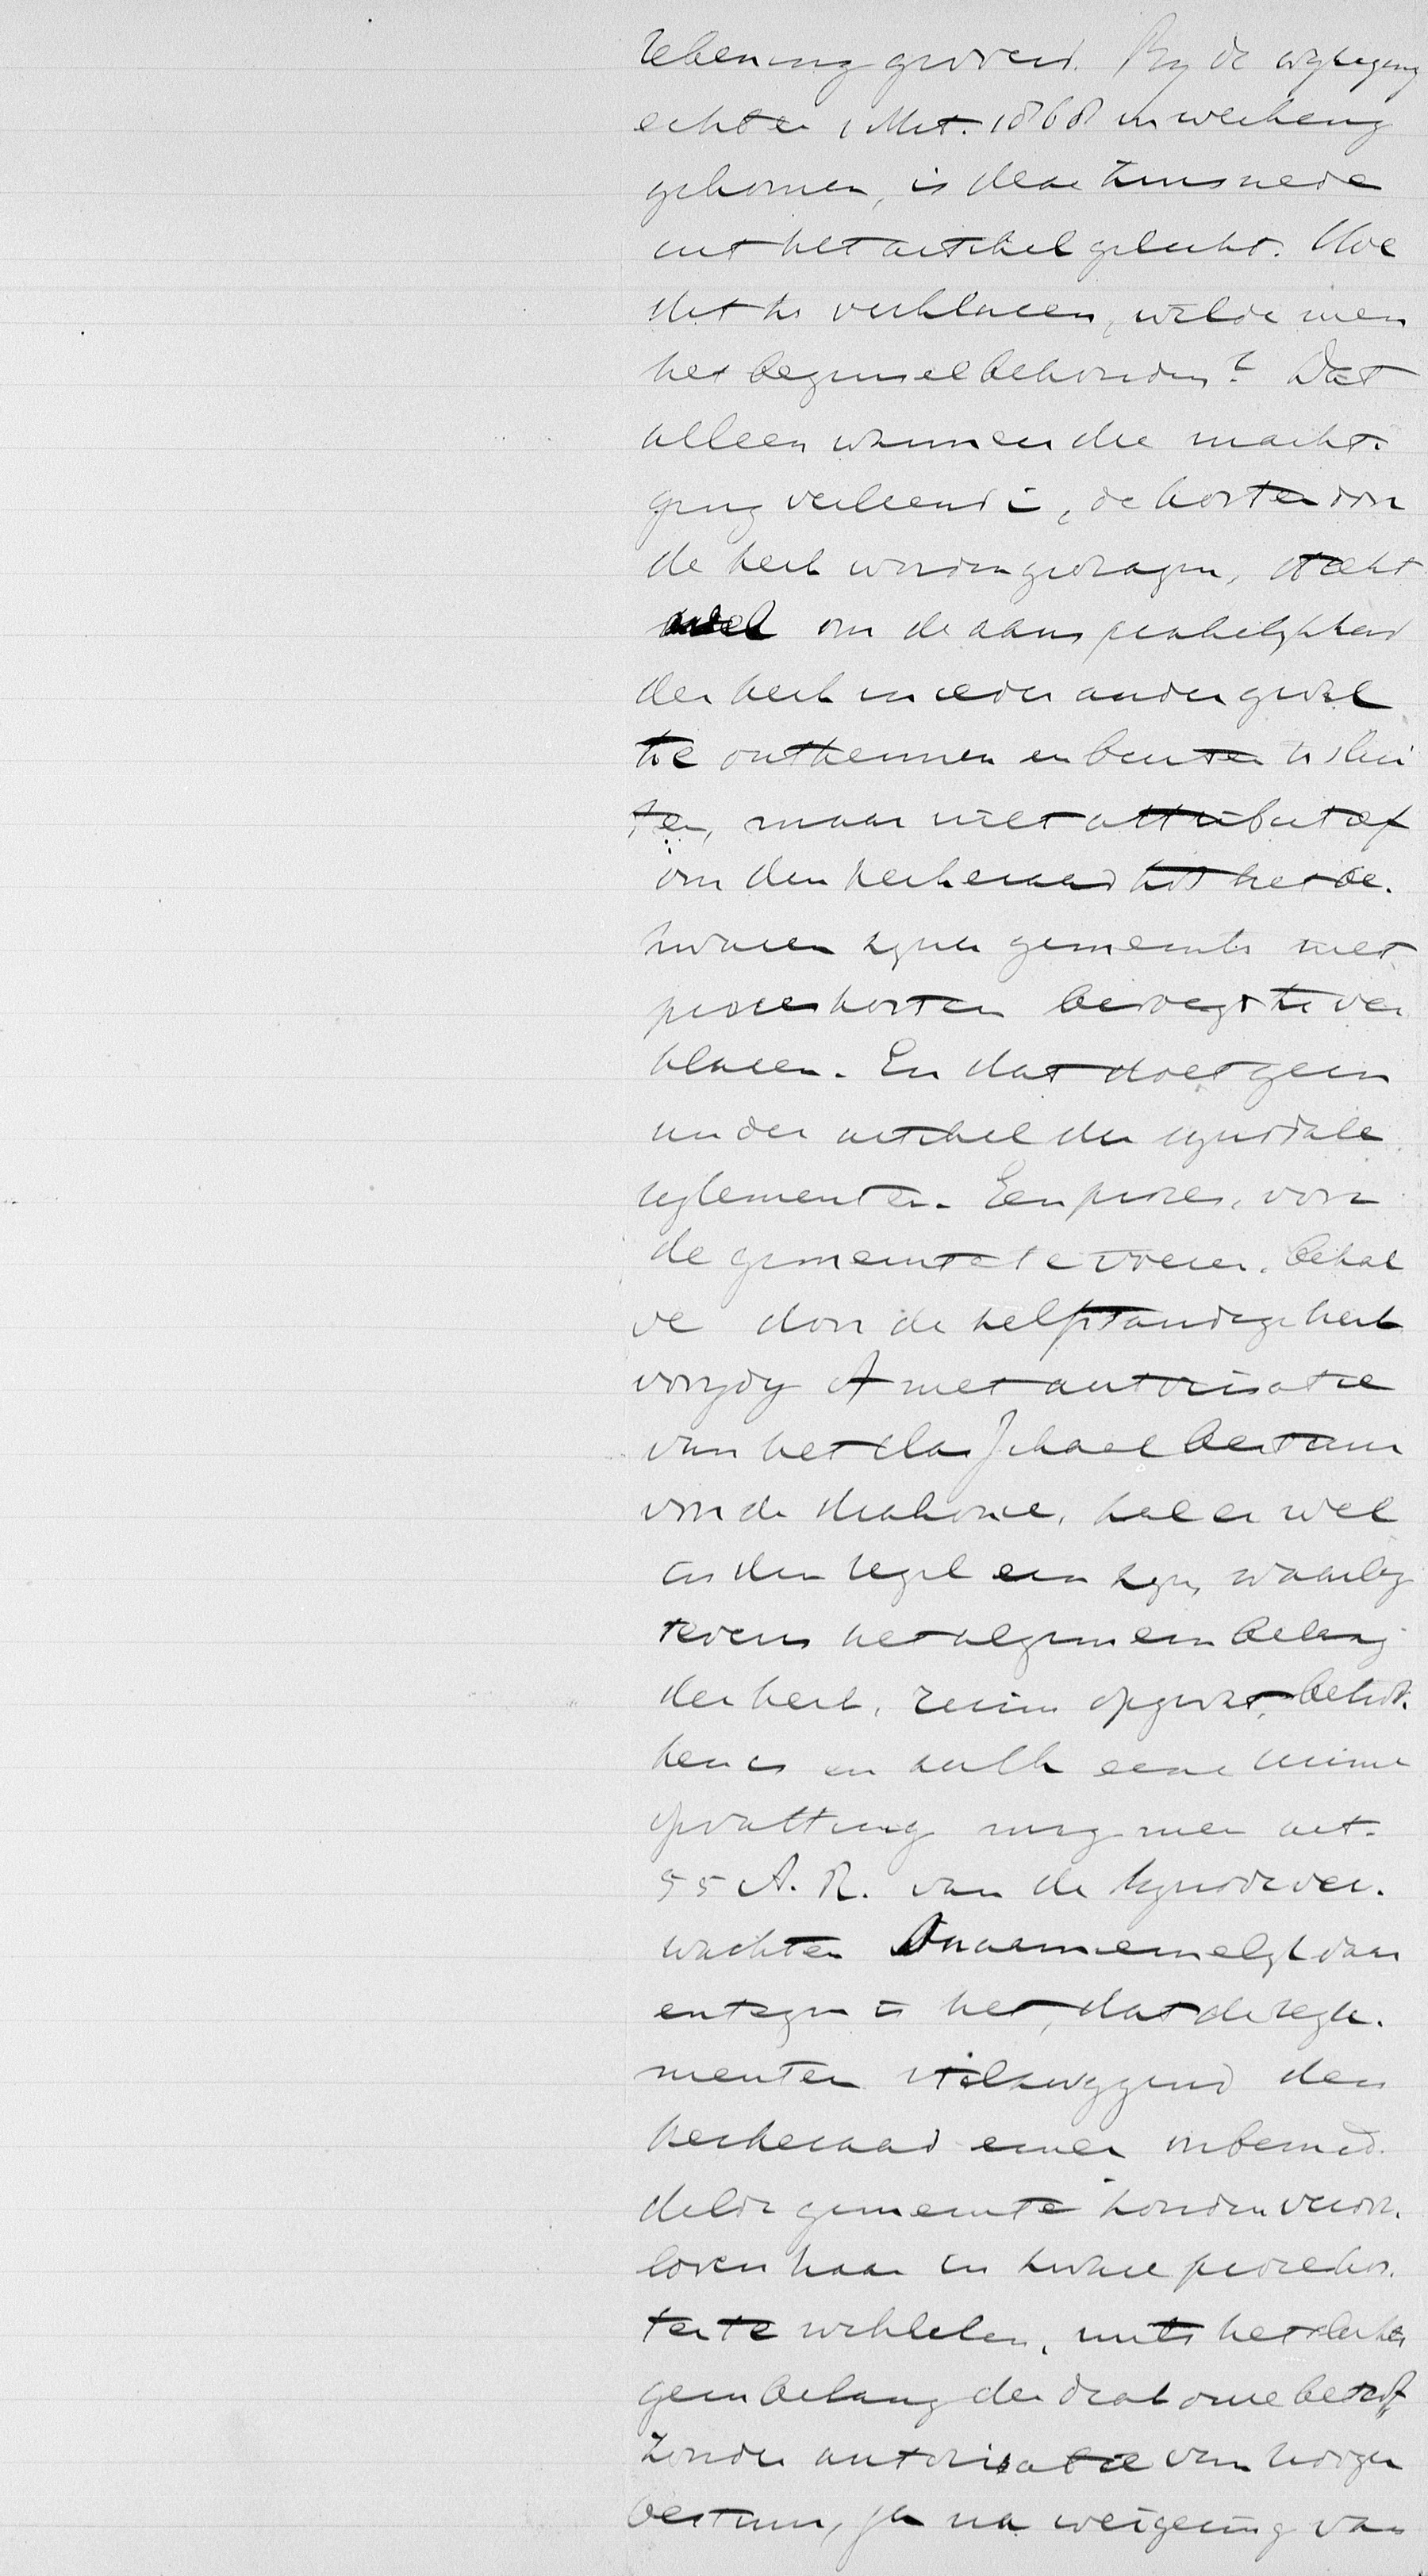 rekening gevoerd. By de wijziging
echter 1 Mrt. 1868 in werking
gekomen, is deze tusschnede
uit het artikel gelicht. Hoe
dit te verklaren, wilde men
het beginsel behouden? Dat
alleen wanneer die machti
ging verleend is, de kosten door
de kerk worden gedragen, strekt
wel om de aansprakelijkheid
der kerk in ieder ander geval
te ontkennen en buiten te slui
ten, maar niet attributief
om den kerkeraad tot het be-
zwaren zyner gemeente met
proceskosten bevoegd te ver
klaren. En dat doet geen
ander artikel der synodale
reglementen. Een proces, voor
de gemeente te voeren, behal
ve door de zelfstandige kerk
voogdy of met autorisatie
van het klassikaal bestuur
voor de diakonie, zal er wel
in den regel een zyn, waarby
tevens het algemeen belang
der kerk, ruim opgevat, betrok-
ken is en zulk eene ruime
opvatting mag men art.
55 A. R. van de Synode ver-
wachten Onaannemelyk daar
entegen is het, dat de regle-
menten stilzwygend den
kerkeraad eener onbemid-
delde gemeente zouden veroor-
loven haar in zware proceskos-
ten te wikkelen, mits het slechts
geen belang der diakonie betrof,
zonder autorisatie van hooger
bestuur, ja na weigering van